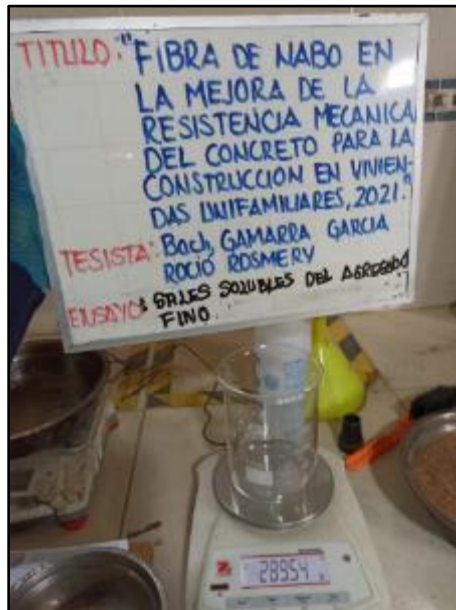 TITULO: "FIBRA DE NABO EN
LA MEJORA DE LA
RESISTENCIA MECANICA
DEL CONCRETO PARA LA
CONSTRUCCION EN VIVIEN-
DAS UNIFAMILIARES, 2021."
TESISTA: Bach, GAMARRA GARCIA
ROCIO ROSMERY
ENSAYO: SALES SOLUBLES DEL AGREGADO
FINO.
289.54